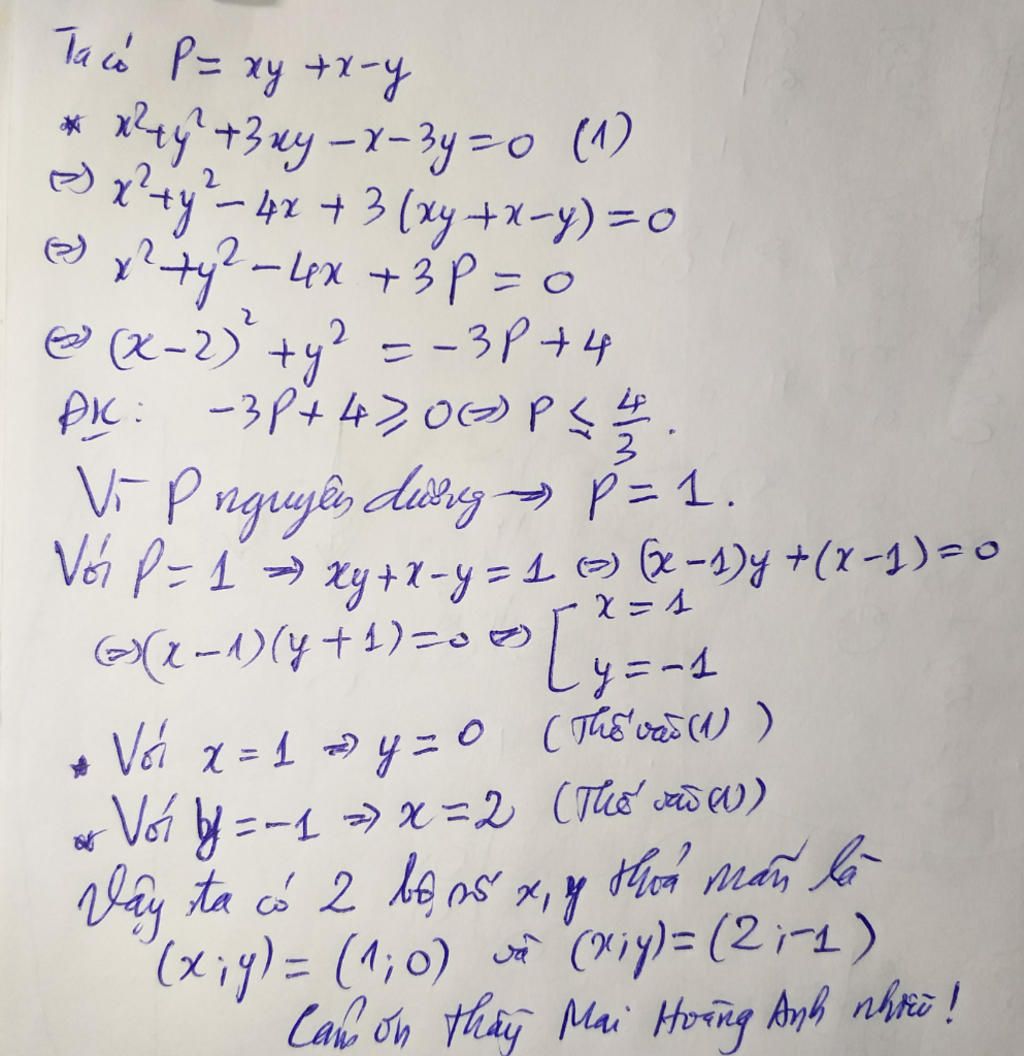 Ta có P = xy + x - y
* x² + y² + 3xy - x - 3y = 0 (1)
⇔ x² + y² - 4x + 3(xy + x - y) = 0
⇔ x² + y² - 4x + 3P = 0
⇔ (x - 2)² + y² = -3P + 4
ĐK: -3P + 4 ≥ 0 ⇔ P ≤ 4/3.
Vì P nguyên dương → P = 1.
Với P = 1 ⇒ xy + x - y = 1 ⇔ (x - 1)y + (x - 1) = 0
⇔ (x - 1)(y + 1) = 0 ⇔ [ x = 1
y = -1
* Với x = 1 ⇒ y = 0 (Thế vào (1))
* Với y = -1 ⇒ x = 2 (Thế vào (1))
Vậy ta có 2 bộ số x, y thoả mãn là
(x; y) = (1; 0) và (x; y) = (2; -1)
Cảm ơn thầy Mai Hoàng Anh nhiều!